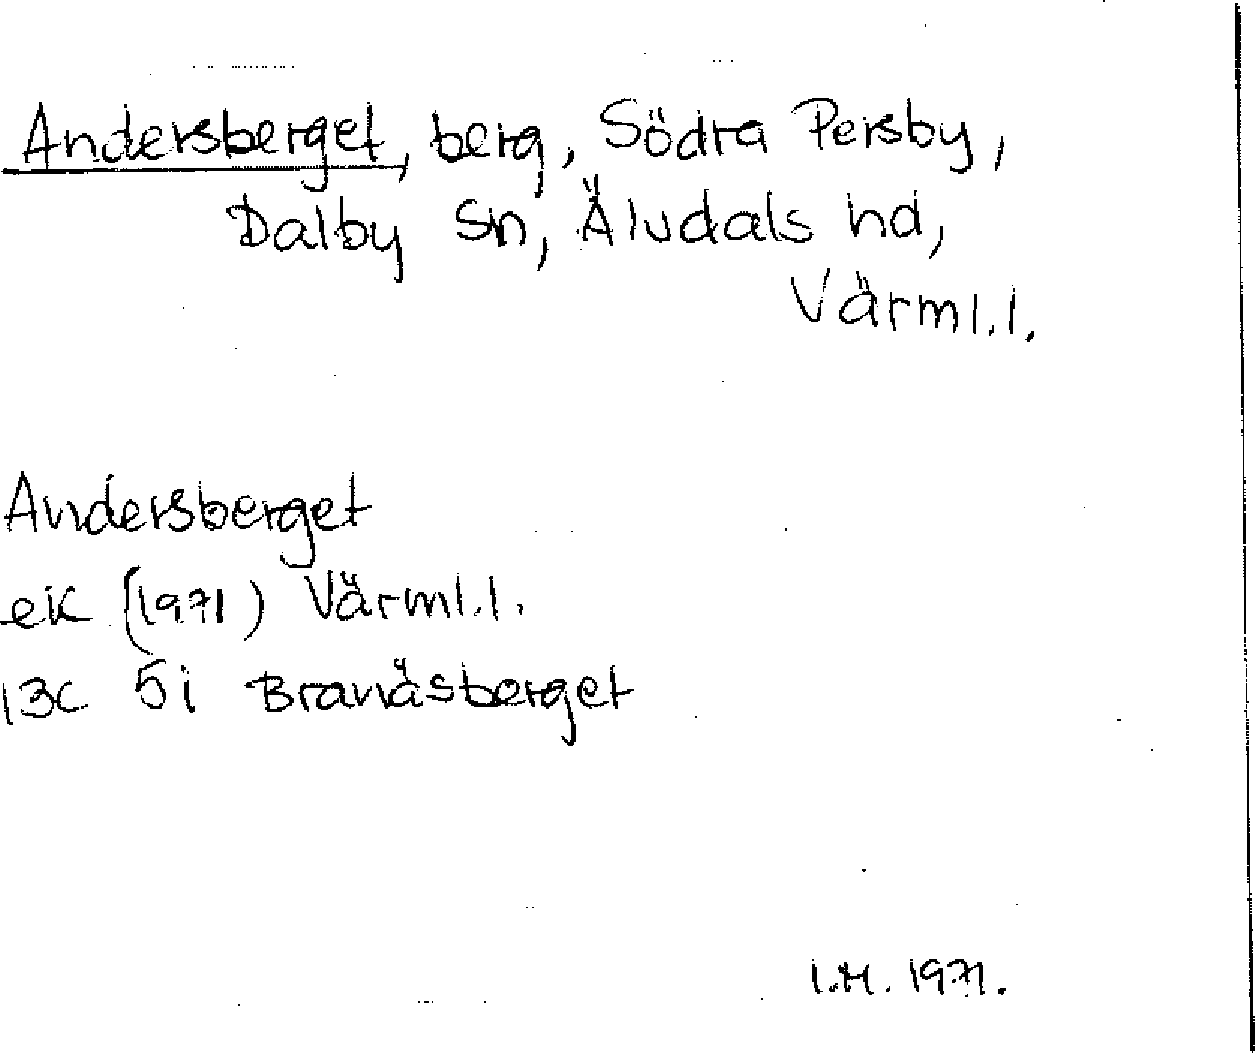 Andersberget, berg, Södra Persby,
Dalby sn, Älvdals hd,
Värml.l.
Andersberget
ek (1971) Värml.l.
13C 5i Branäsberget
I.M. 1971.